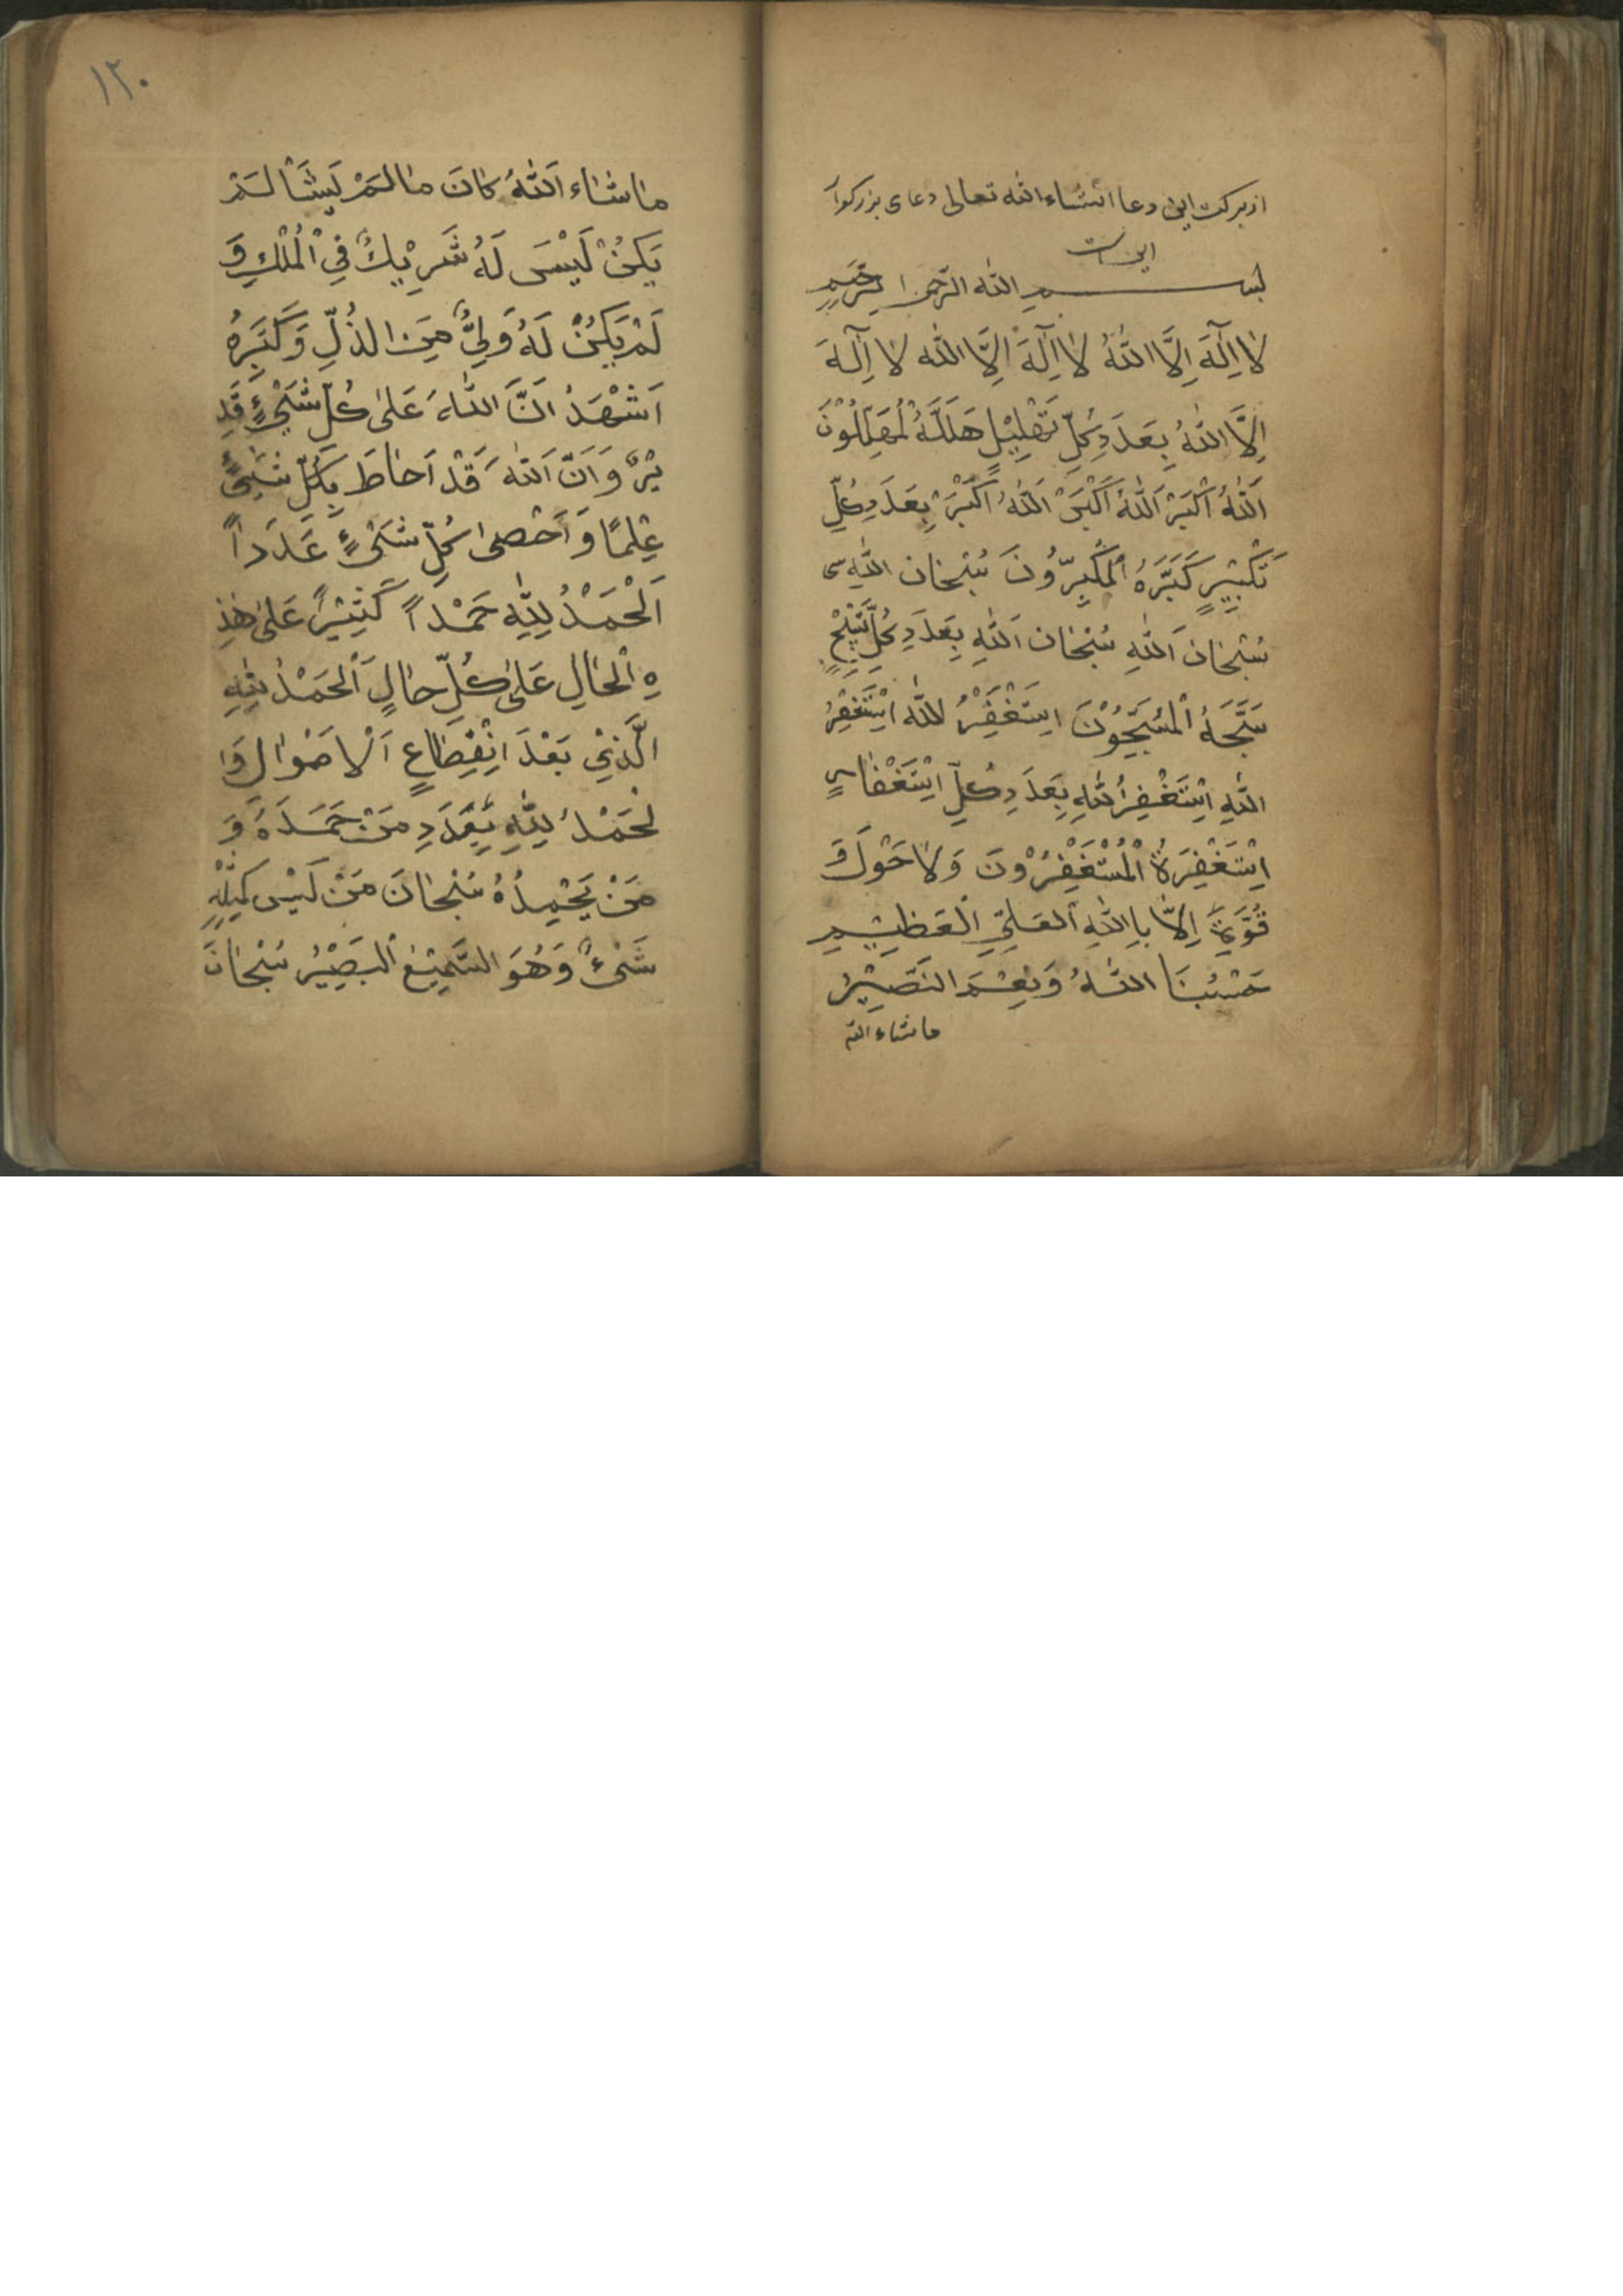 از برکت این دعا انشاء الله تعالی دعای بزرکوار
این است
بسم الله الرحمن الرحیم
لا اِلٰهَ اِلَّا اللّٰهُ لا اِلٰهَ اِلَّا اللّٰه لا اِلٰهَ
اِلَّا اللّٰهُ بِعَدَدِ كُلِّ تَهْلِیْلٍ هَلَّلَهُ لْمُهَلِّلُوْنَ
اَللّٰهُ اَكْبَرْ اَللّٰهُ اَكْبَرْ اَللّٰهُ اَكْبَرْ بِعَدَدِ كُلِّ
تَكْبِیْرٍ كَبَّرَهُ اْلمُكَبِّرُونَ سُبْحٰان اللّٰهِ
سُبْحٰان اَللّٰهِ سُبْحٰان اَللّٰهِ بِعَدَدِ كُلِّ تَسْبِیْحٍ
سَبَّحَهُ اْلمُسَبِّحُوْنَ اسْتَغْفِرُ للّٰه اسْتَغْفِرُ
اللّٰهِ اسْتَغْفِرُ للّٰهِ بِعَدَدِ كُلِّ اسْتَغْفٰارٍ
اِسْتَغْفَرَهُ اْلمُسْتَغْفِرُوْنَ وَلا حَوْلَ وَ
قُوَّةَ اِلاّٰ بِاللّٰهِ اْلعَلِيِّ اْلعَظِیْمِ
حَسْبُنَا اللّٰهُ وَنِعْمَ النَّصِیْرُ
ماشاء الله
مٰاشٰاء اَللّٰهُ كٰانَ مٰا لَمْ یَشَا لَمْ
یَكُنْ لَیْسَ لَهُ شَرِیْكٌ فِي اْلمُلْكِ وَ
لَمْ یَكُنْ لَهُ وَلِيٌّ مِنَ الذُلِّ وَكَبِّرْهُ
اَشْهَدُ انَّ اللّٰهَ عَلىٰ كُلِّ شَيْءٍ قَدِ
یْرٌ وَاَنَّ اَللّٰهَ قَدْ اَحٰاطَ بِكُلِّ شَيْءٍ
عِلْمًا وَاَحْصىٰ كُلِّ شَيْءٍ عَدَداً
اَلْحَمْدُ لِلّٰهِ حَمْداً كَثِیْرًا عَلىٰ هٰذِ
هِ اْلحٰالِ عَلىٰ كُلِّ حٰالٍ اَلْحَمْدُ لِلّٰهِ
الَّذِيْ بَعْدَ انْقِطٰاعِ اَلْاصْوٰالِ وَا
لْحَمْدُ لِلّٰهِ بِعَدَدِ مَنْ حَمَدَهُ وَ
مَنْ یَحْمِدُهُ سُبْحٰانَ مَنْ لَیْس كَمِثْلِهِ
شَيْءٌ وَهُوَ السَّمِیْعُ اْلبَصِیْرُ سُبْحٰانَ
۱۲۰